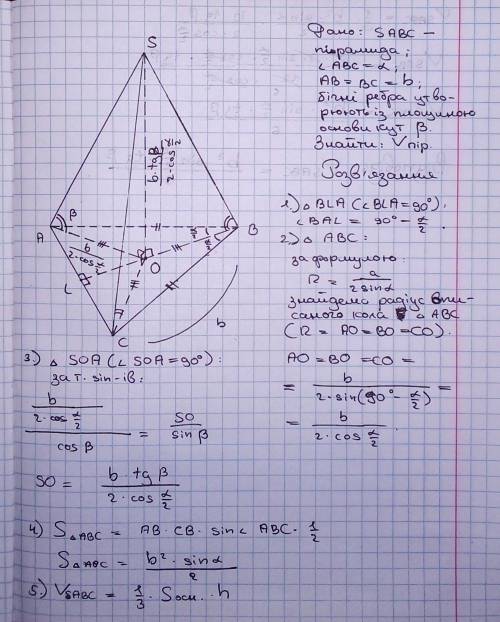 Дано: SABC –
піраміда;
∠ABC = α;
AB = BC = b;
бічні ребра утво-
рюють із площиною
основи кут β.
Знайти: Vпір.
Розв'язання
1.) △ BLA (∠BLA = 90°):
∠BAL = 90° - α/2.
2.) △ ABC:
за формулою:
R = a / 2sinα
знайдемо радіус впи-
саного кола △ ABC
(R = AO = BO = CO).
AO = BO = CO =
= b / 2·sin(90° - α/2) =
= b / 2·cos α/2.
S
b·tgβ / 2·cos α/2
A
β
B
α/2
b / 2·cos α/2
O
L
C
b
3.) △ SOA (∠ SOA = 90°):
за т. sin-ів:
b / 2·cos α/2 / cos β = SO / sin β
SO = b·tg β / 2·cos α/2
4.) S△ABC = AB·CB·sin∠ ABC·1/2
S△ABC = b²·sinα / 2
5.) VSABC = 1/3·Sосн.·h